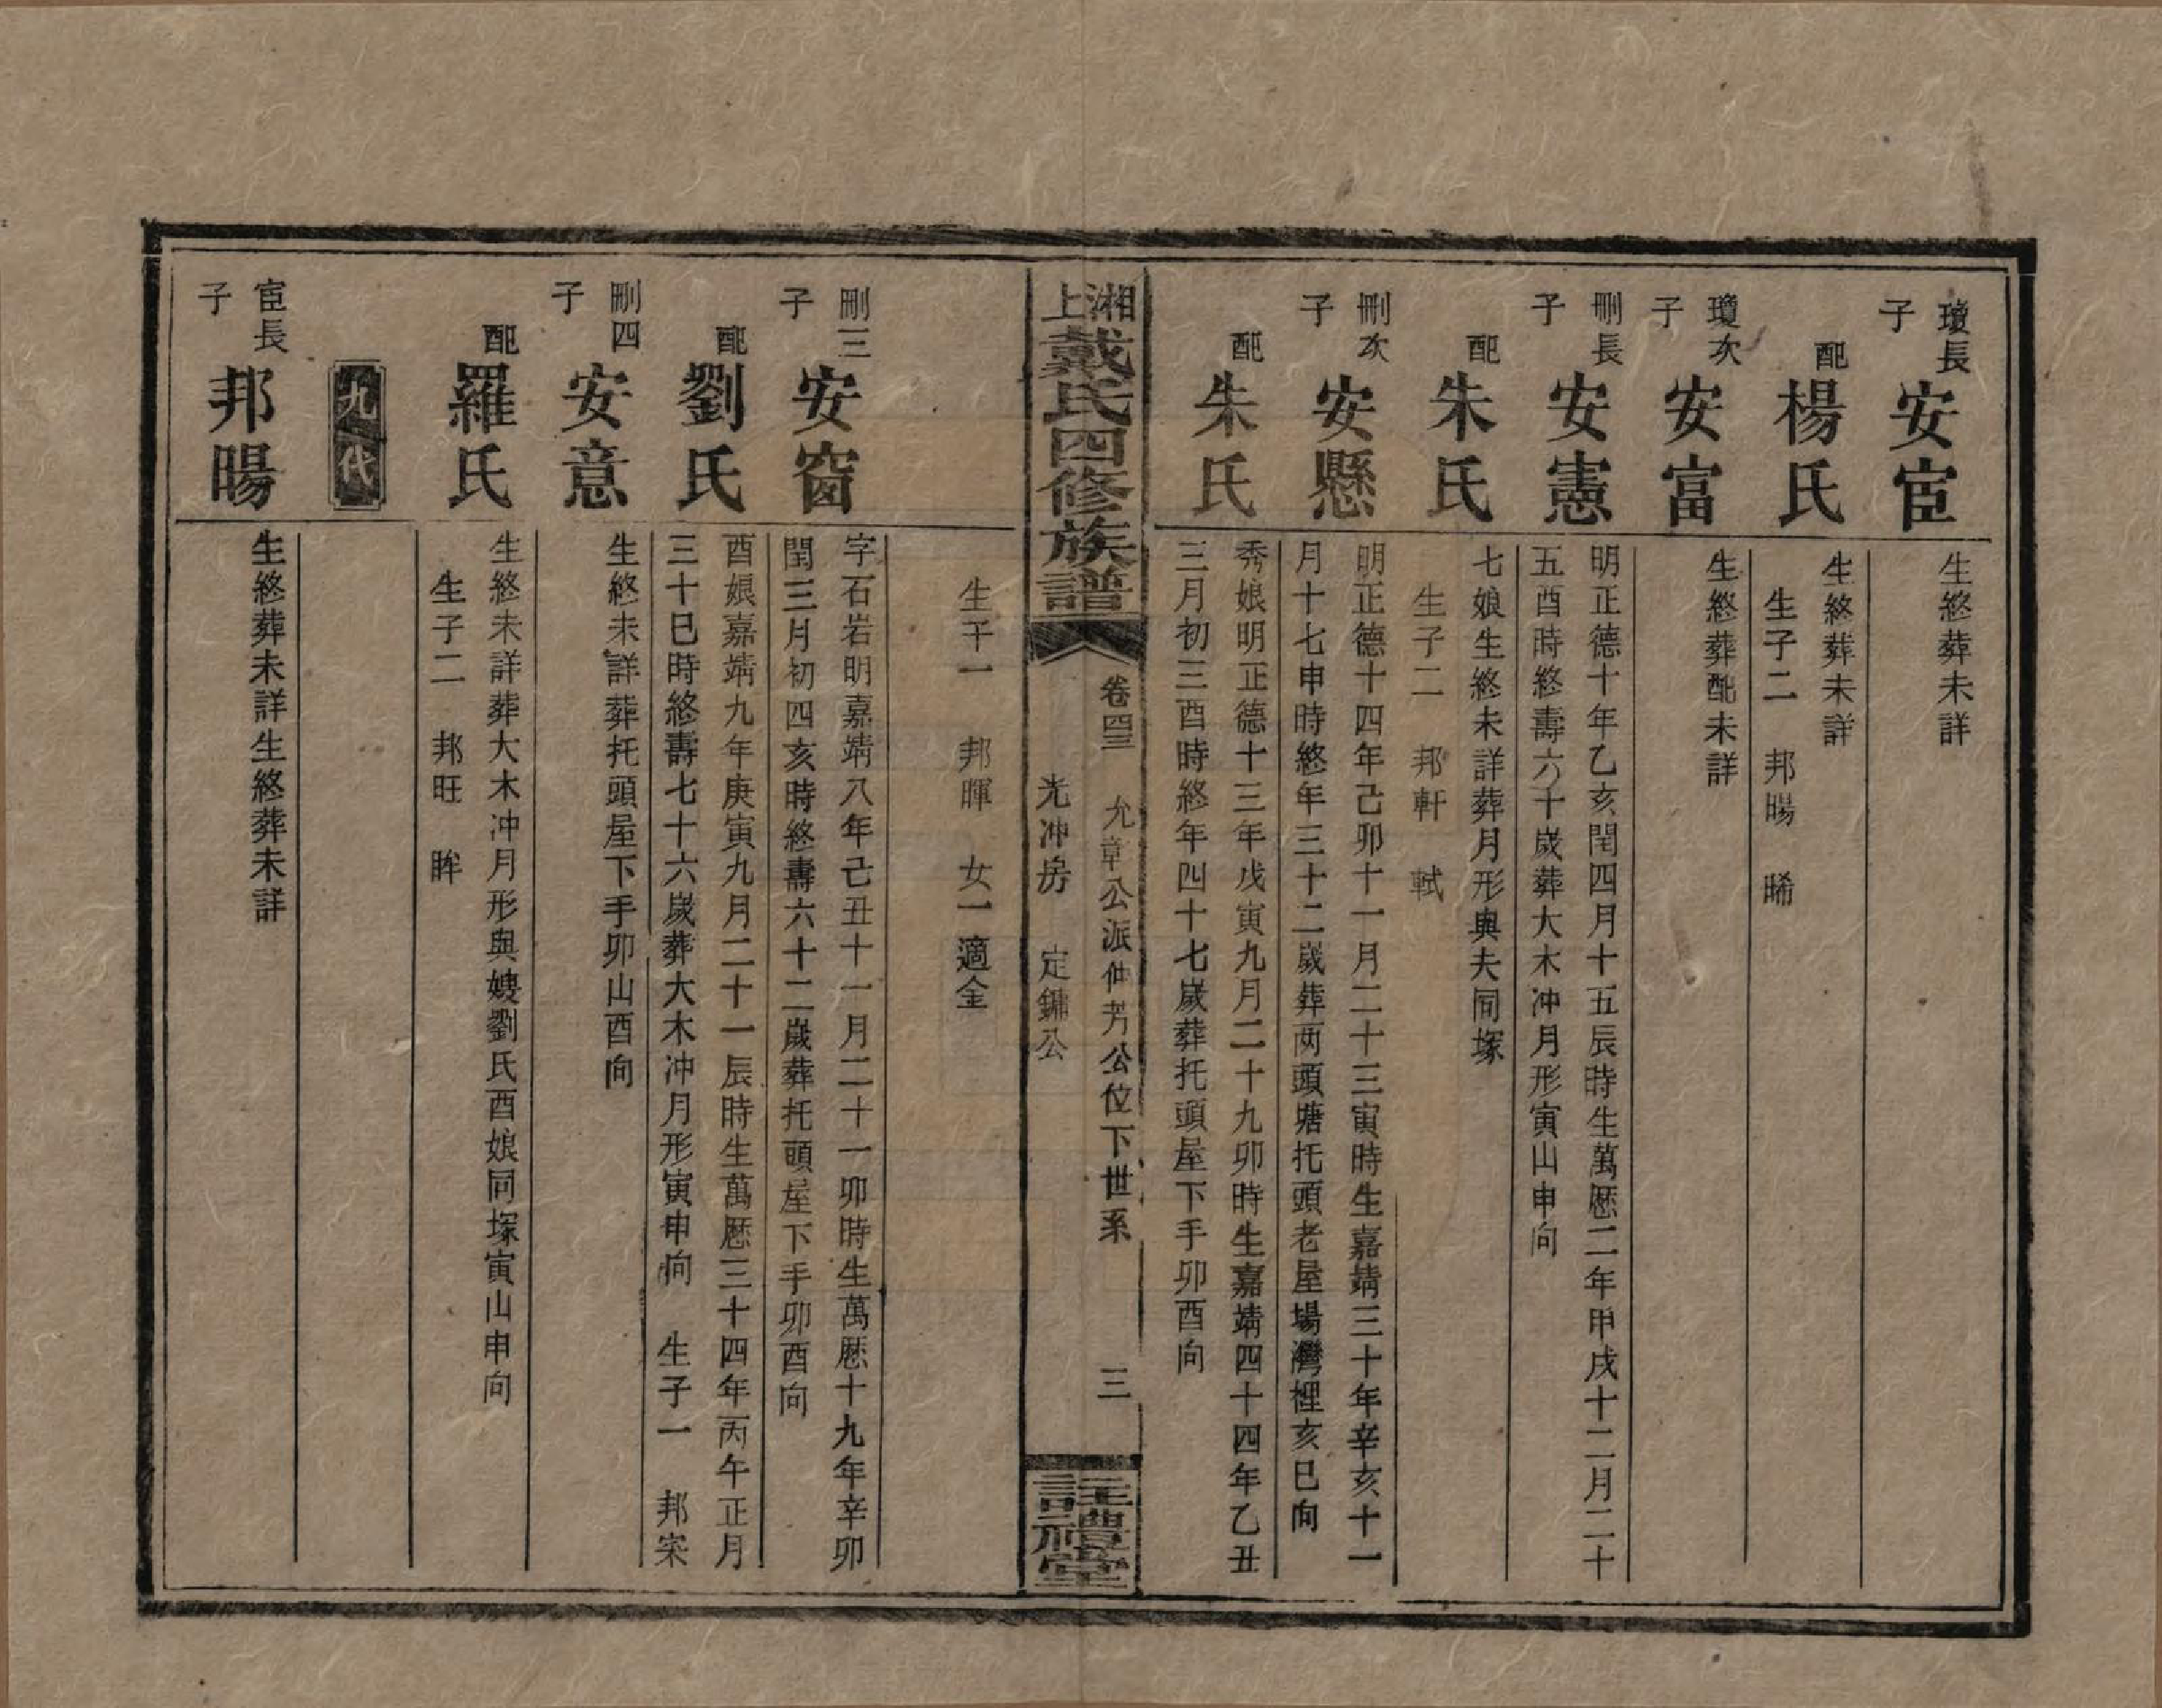 瓊長子
安宦
生終葬未詳
配
楊氏
生終葬未詳
生子二　邦暘　晞
瓊次子
安富
生終葬配未詳
刪長子
安憲
明正德十年乙亥閏四月十五辰時生萬厯二年甲戌十二月二十
五酉時終壽六十歲葬大木冲月形寅山申向
配
朱氏
七娘生終未詳葬月形與夫同塚
生子二　邦軒　軾
刪次子
安懸
明正德十四年己卯十一月二十三寅時生嘉靖三十年辛亥十一
月十七申時終年三十二歲葬两頭塘托頭老屋場灣裡亥巳向
配
朱氏
秀娘明正德十三年戊寅九月二十九卯時生嘉靖四十四年乙丑
三月初三酉時終年四十七歲葬托頭屋下手卯酉向
湘上戴氏四修族譜
卷四三　允章公派仲芳公位下世系　三
光冲房　定鏽公
註禮堂
生子一　邦暉　女一適金
刪三子
安窗
字石岩明嘉靖八年己丑十一月二十一卯時生萬厯十九年辛卯
閏三月初四亥時終壽六十二歲葬托頭屋下手卯酉向
配
劉氏
酉娘嘉靖九年庚寅九月二十一辰時生萬厯三十四年丙午正月
三十巳時終壽七十六歲葬大木冲月形寅申向　生子一　邦宷
刪四子
安意
生終未詳葬托頭屋下手卯山酉向
配
羅氏
生終未詳葬大木冲月形與嫂劉氏酉娘同塚寅山申向
生子二　邦旺　眸
九代
宦長子
邦暘
生終葬未詳生終葬未詳